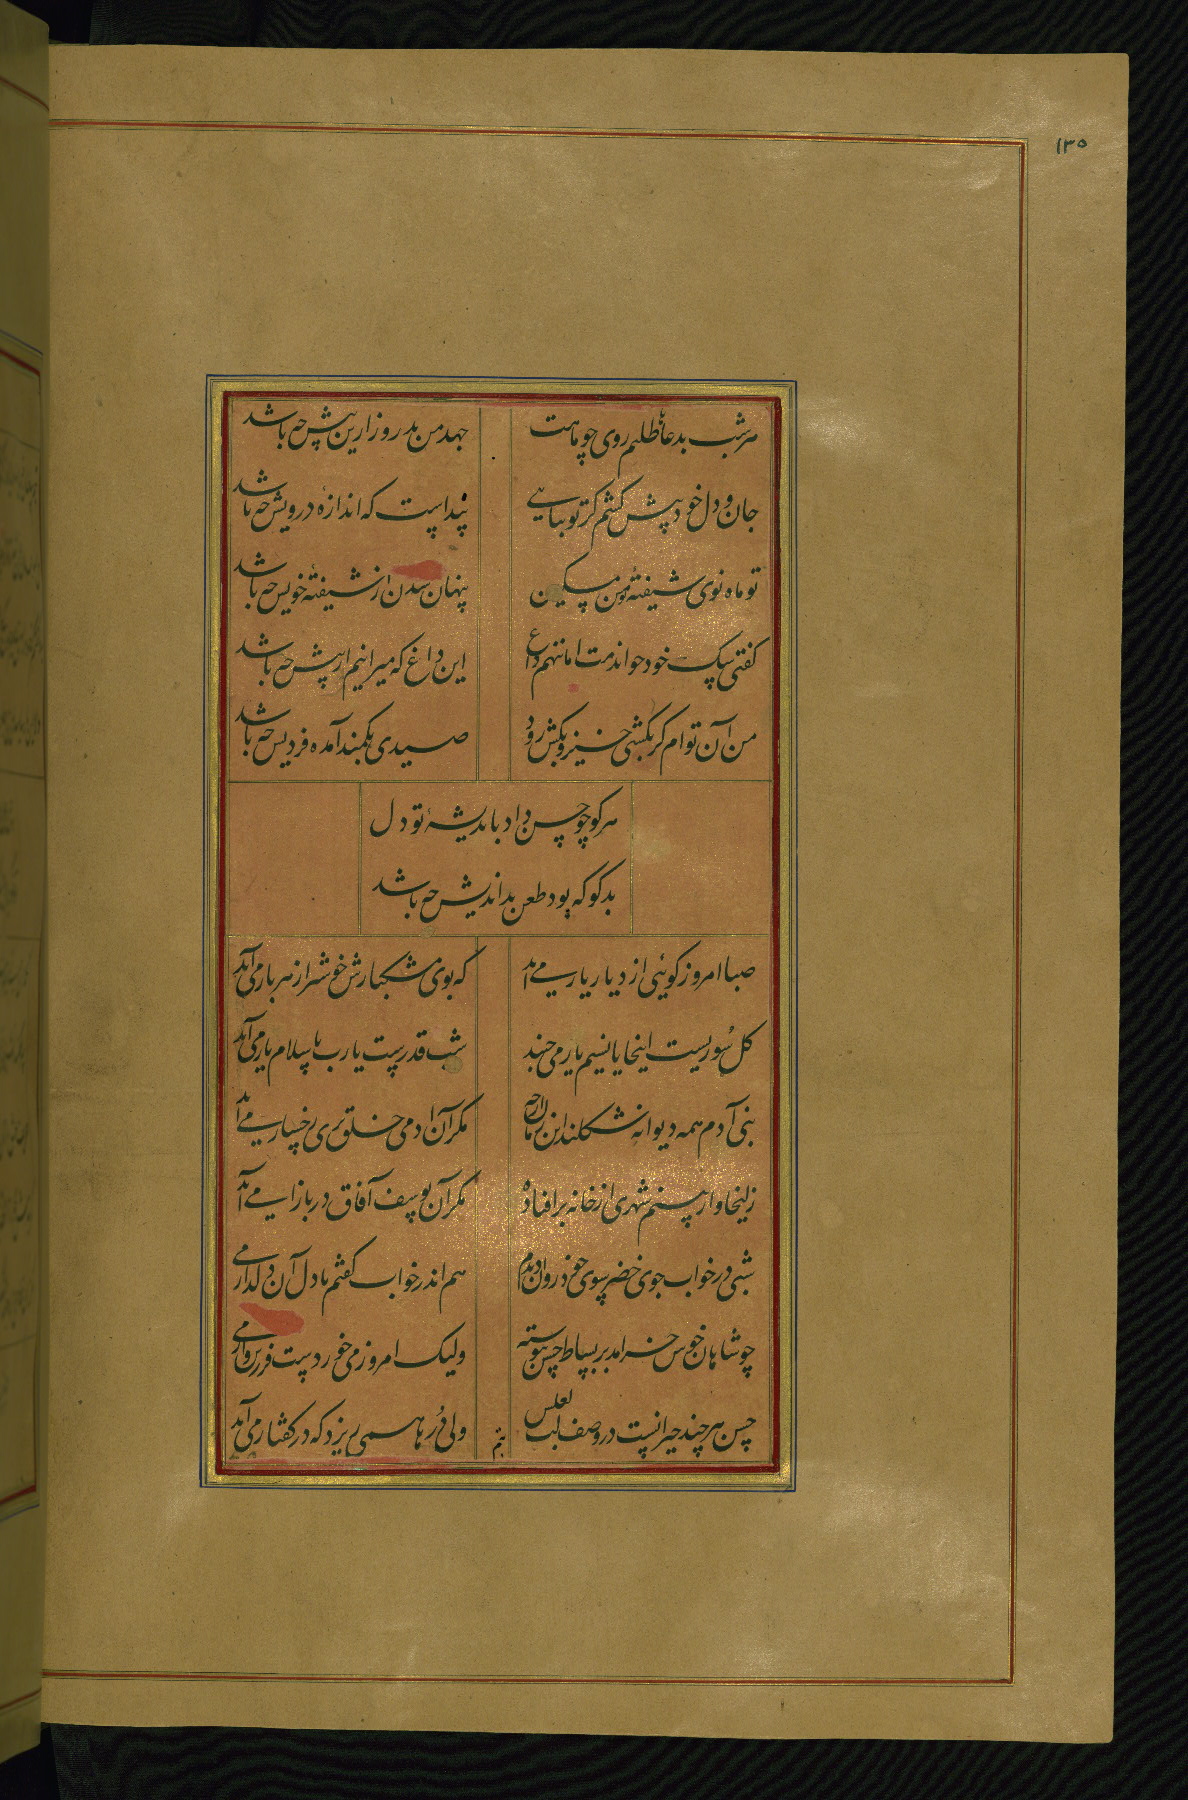 ١٣٥
هر شب بدعاها طلبم روی چو ماهت جهد من بد روز ازین پیش چه باشد
جان و دل خود پیش کشم گر تو بیایی پیداست که اندازهٔ درویش چه باشد
تو ماه نوی شیفته تو من مسکین پنهان شدن از شیفتهٔ خویش چه باشد
گفتی سگ خود خواندمت اما ننهم داغ این داغ که میرانیم از پیش چه باشد
من آن توام گر بکشی خیز و بکش زود صیدی بکمند آمده فردیس چه باشد
هر کو چو حسن داد باندیشهٔ تو دل
بدگو که بود طعن بداندیش چه باشد
صبا امروز گوئی از دیار یار می آمد که بوی مشکبارش خوشتر از هر بار می آمد
گل سوریست اینجا یا نسیم یار می جنبد شب قدرست یا رب یا سلام یار می آمد
بنی آدم همه دیوانه شکلند این زمان ارچه مگر آن آدمی خلق پری رخسار می آمد
زلیخاوار صنم شهری از خانه برافتاده مگر آن یوسف آفاق در بازار می آمد
شبی در خواب جوی خضر سوی خود روان دیدم هم اندر خواب گفتم با دل آن دلدار می
چو شاهان خوش خرامد بر بساط حسن پیوسته ولیک امروز می خوردست فرزین وار می
حسن هر چند حیرانست در وصف لب لعلش ولی دُرها همی ریزد که در گفتار می آمد